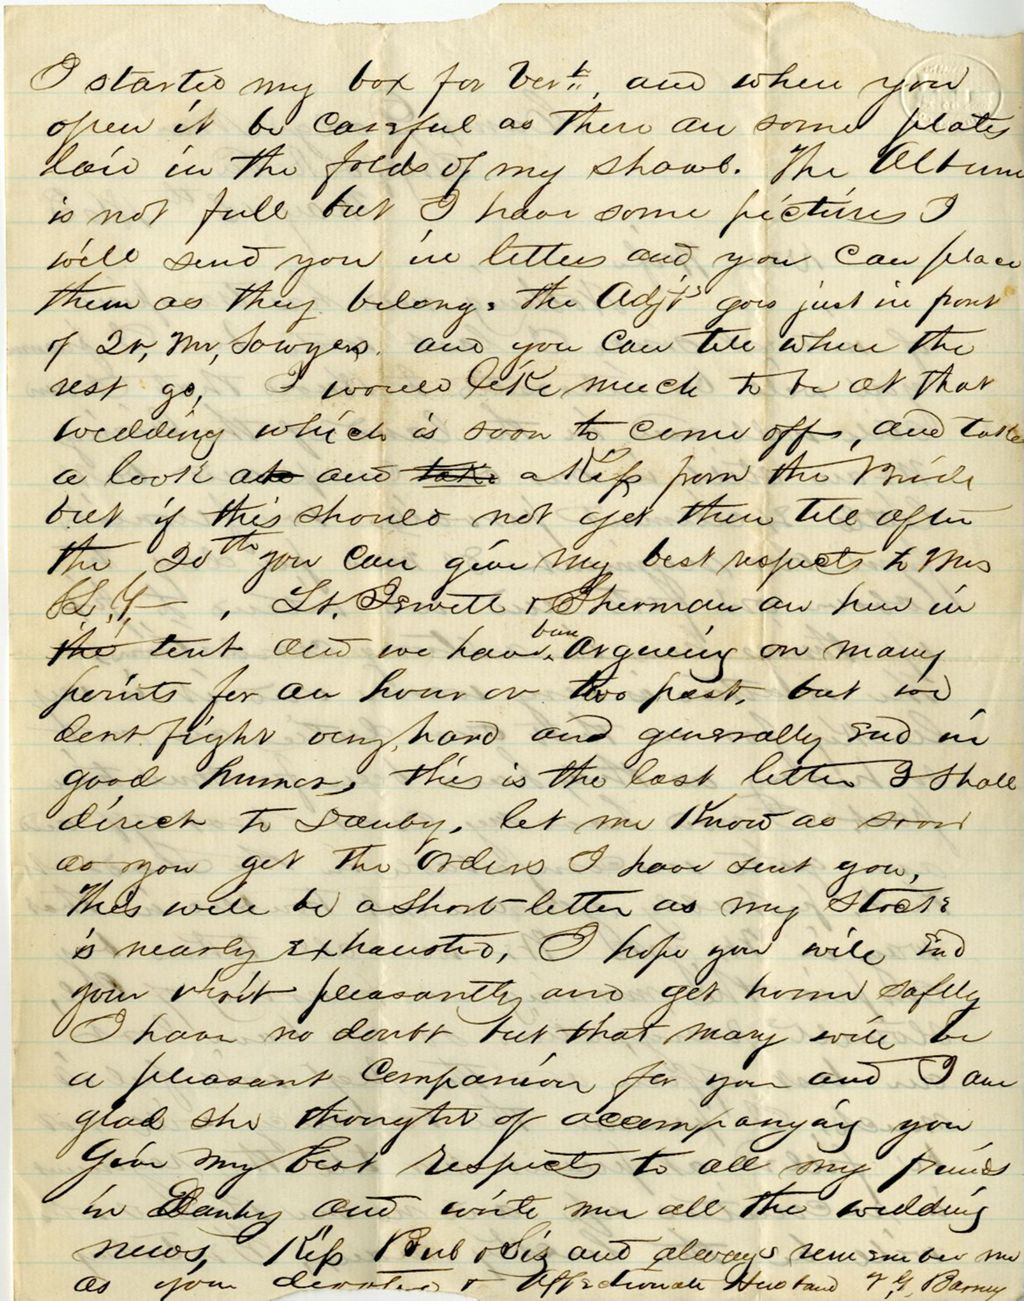 I started my box for Vert, and when you
open it be careful as there are some plates
laid in the folds of my shawl. The Album
is not full but I have some pictures I
will send you in letters and you can place
them as they belong, the Adjt's goes just in front
of Qr, Mr, Sawyers. and you can tell where the
rest go, I would like much to be at that
wedding which is soon to come off, and take
a look at and take a Kiss from the Bride
but if this should not get there till after
the 20th you can give my best respects to Mrs
, Lt. Jewett & Sherman are here in
the tent and we have been Argueing on many
points for an hour or two past, but we
dont fight very hard and generally End in
good humor, this is the last letter I shall
direct to Danby, let me Know as soon
as you get the orders I have sent you,
This will be a short letter as my stock
is nearly exhausted, I hope you will End
your visit pleasantly and get home safely
I have no doubt but that Mary will be
a pleasant Companion for you and I am
glad she thought of accompanying you
Give my best respects to all my friends
in Danby and write me all the wedding
news, Kiss Bub & Sis and always remember me
as your devoted & Affectionate Husband V. G, Barney